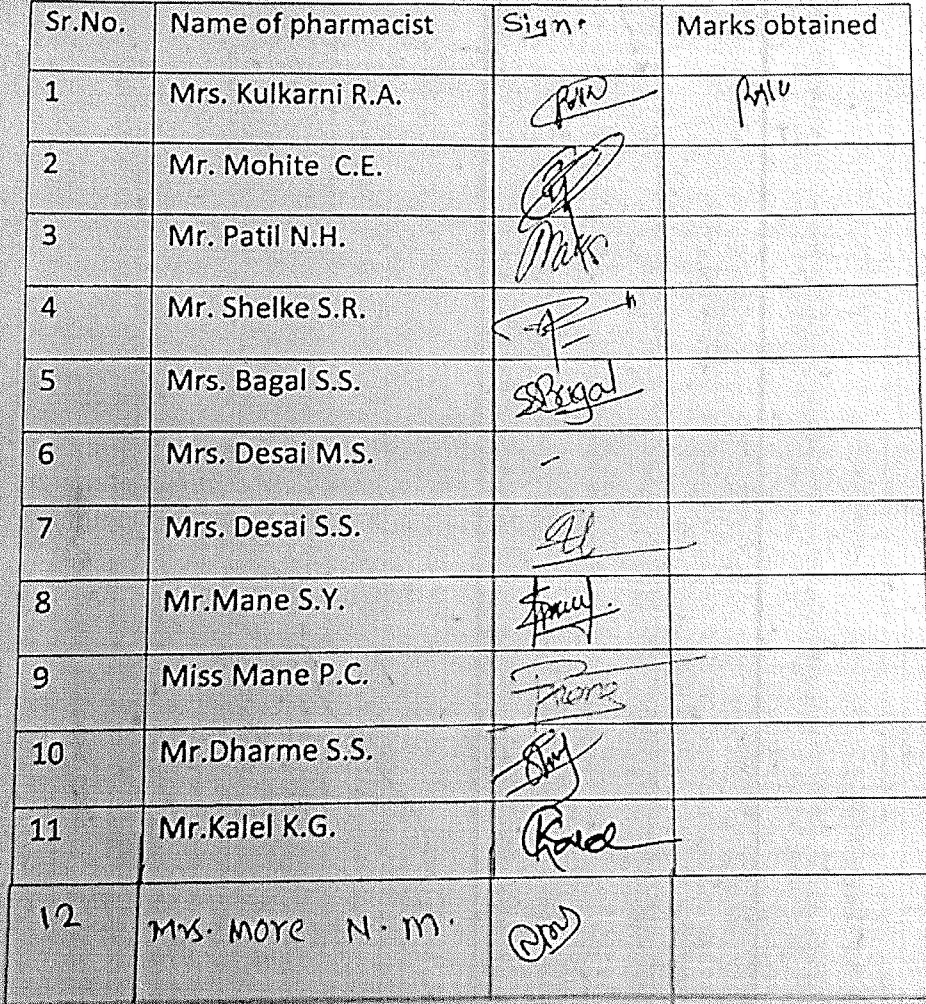 Sr.No. Name of pharmacist Sign. Marks obtained
1 Mrs. Kulkarni R.A.
2 Mr. Mohite C.E.
3 Mr. Patil N.H.
4 Mr. Shelke S.R.
5 Mrs. Bagal S.S. SSBagal
6 Mrs. Desai M.S. -
7 Mrs. Desai S.S.
8 Mr.Mane S.Y.
9 Miss Mane P.C.
10 Mr.Dharme S.S.
11 Mr.Kalel K.G.
12 Mrs. More N.M.